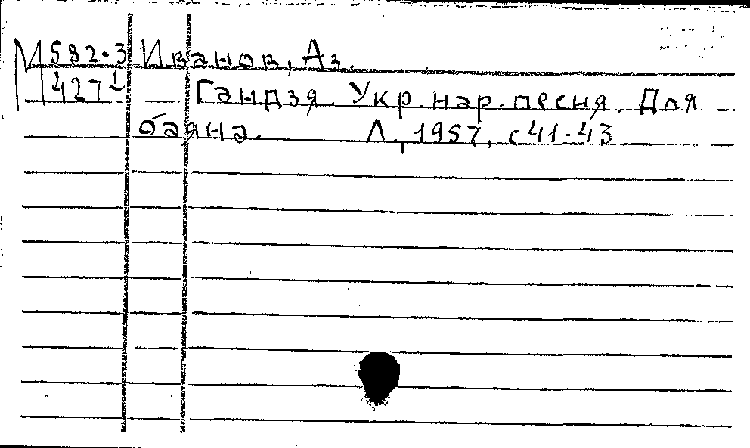 М 582-3 Иванов, Аз.
427 1 Гандзя. Укр. нар. песня. Для
баяна. Л., 1957, с 41-43